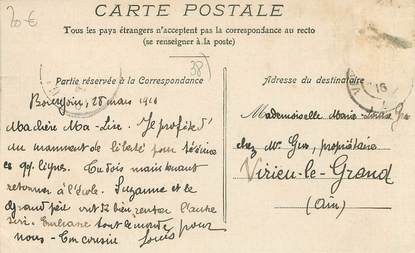 20 €
CARTE POSTALE
Tous les pays étrangers n'acceptent pas la correspondance au recto
(se renseigner à la poste)
38
Partie réservée à la Correspondance
Adresse du destinataire
28 mars
Ma chère Ma-Lise. Je profite d'
un moment de liberté pour t'écrire
ces qq. lignes. Tu dois maintenant
retourner à l'école. Suzanne et le
Grand père ont dû bien rentrer l'autre
tout le monde pour
nous - Ton cousin Louis
Mademoiselle Marie-Louise
chez Mr propriétaire
Virieu-le-Grand
(Ain)